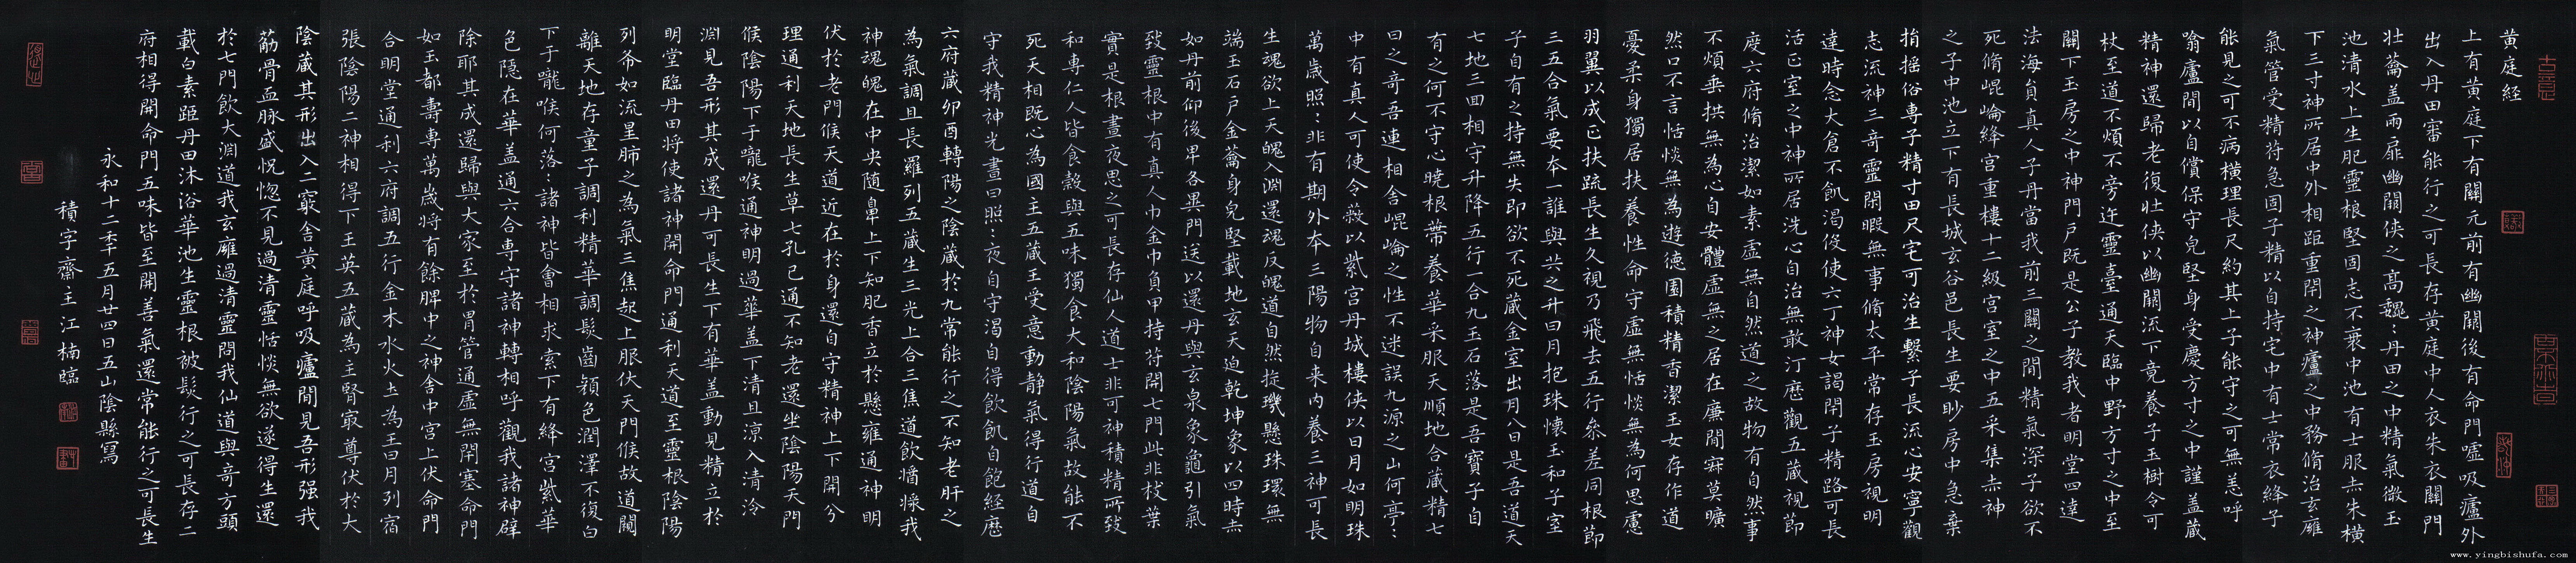 黄庭経
上有黄庭下有關元前有幽闕後有命門噓吸廬外
出入丹田審能行之可長存黄庭中人衣朱衣關門
壯蘥盖兩扉幽闕俠之髙魏〻丹田之中精氣微玉
池清水上生肥靈根堅固志不衰中池有士服赤朱横
下三寸神所居中外相距重閉之神廬之中務脩治玄廱
氣管受精苻急固子精以自持宅中有士常衣絳子
能見之可不病横理長尺約其上子能守之可無恙呼
噏廬間以自償保守皃堅身受慶方寸之中謹盖蔵
精神還歸老復壯俠以幽闕流下竟養子玉樹令可
杖至道不煩不旁迕靈臺通天臨中野方寸之中至
關下玉房之中神門戸既是公子教我者明堂四達
法海員真人子丹當我前三關之間精氣深子欲不
死脩崐崘絳宫重樓十二級宫室之中五采集赤神
之子中池立下有長城玄谷邑長生要眇房中急棄
捐揺俗専子精寸田尺宅可治生繫子長流心安寧觀
志流神三竒靈閑暇無事脩太平常存玉房視明
達時念大倉不飢渇伇使六丁神女謁閉子精路可長
活正室之中神所居洗心自治無敢汙歴觀五蔵視節
度六府脩治潔如素虚無自然道之故物有自然事
不煩垂拱無為心自安體虚無之居在廉間寂莫曠
然口不言恬惔無為遊徳園積精香潔玉女存作道
憂柔身獨居扶養性命守虚無恬惔無為何思慮
羽翼以成正扶疏長生久視乃飛去五行参差同根節
三五合氣要本一誰與共之升日月抱珠懷玉和子室
子自有之持無失即欲不死蔵金室出月入日是吾道天
七地三回相守升降五行一合九玉石落是吾寳子自
有之何不守心曉根蔕養華采服天順地合蔵精七
日之竒吾連相舎崐崘之性不迷誤九源之山何亭〻
中有真人可使令蔽以紫宫丹城樓俠以日月如明珠
萬歳照〻非有期外本三陽物自来内養三神可長
生魂欲上天魄入淵還魂反魄道自然㨔璣懸珠環無
端玉石戸金蘥身皃堅載地玄天迫乾坤象以四時赤
如丹前仰後卑各異門送以還丹與玄泉象龜引氣
致靈根中有真人巾金巾負甲持苻開七門此非枝葉
實是根晝夜思之可長存仙人道士非可神積精所致
和専仁人皆食穀與五味獨食大和陰陽氣故能不
死天相既心為國主五蔵王受意動静氣得行道自
守我精神光晝日照〻夜自守渇自得飲飢自飽経歴
六府蔵卯酉轉陽之陰蔵於九常能行之不知老肝之
為氣調且長羅列五蔵生三光上合三焦道飲醬漿我
神魂魄在中央随鼻上下知肥香立於懸雍通神明
伏於老門候天道近在於身還自守精神上下開分
理通利天地長生草七孔已通不知老還坐陰陽天門
候陰陽下于嚨喉通神明過華盖下清且涼入清泠
淵見吾形其成還丹可長生下有華盖動見精立於
明堂臨丹田将使諸神開命門通利天道至靈根陰陽
列布如流星肺之為氣三焦起上服伏天門候故道闚
離天地存童子調利精華調髮齒顔色潤澤不復白
下于嚨喉何落〻諸神皆會相求索下有絳宫紫華
色隠在華盖通六合専守諸神轉相呼觀我諸神辟
除耶其成還歸與大家至於胃管通虚無閉塞命門
如玉都壽専萬歳将有餘脾中之神舎中宫上伏命門
合明堂通利六府調五行金木水火土為王日月列宿
張陰陽二神相得下玉英五蔵為主腎冣尊伏於大
陰蔵其形出入二竅舎黄庭呼吸廬間見吾形强我
筋骨血脉盛怳惚不見過清靈恬惔無欲遂得生還
於七門飲大淵道我玄廱過清靈問我仙道與竒方頭
載白素距丹田沐浴華池生靈根被髮行之可長存二
府相得開命門五味皆至開善氣還常能行之可長生
永和十二年五月廿四日五山陰縣寫
積字齋主江楠臨
www.yingbishufa.com